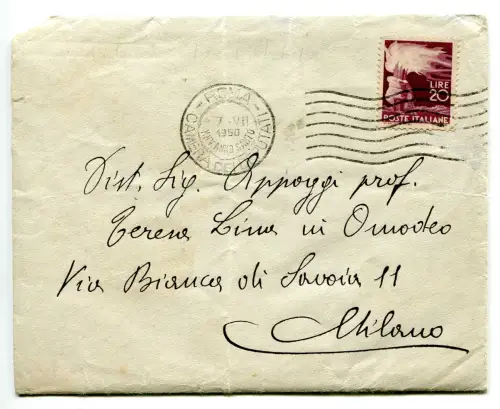 ROMA
CAMERA DEI DEPUTATI
7 - VII
1950
ANNO SANTO
LIRE
20
POSTE ITALIANE
Dist. Sig. Appoggi prof.
Teresa Lina in Omodeo
Via Bianca di Savoia 11
Milano